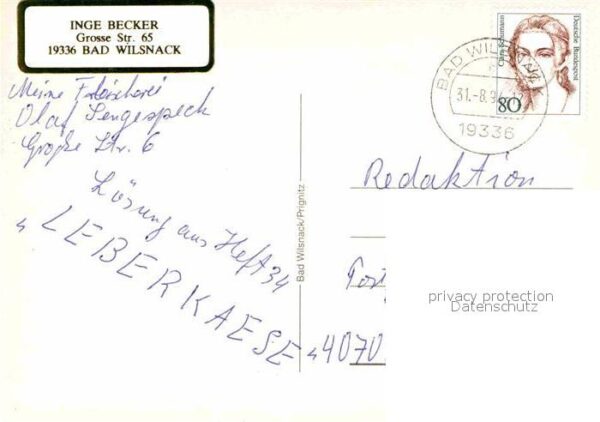 INGE BECKER
Grosse Str. 65
19336 BAD WILSNACK
Meine Fleischerei
Olaf Sengespeck
Große Str. 6
Lösung aus Heft 34
"LEBERKAESE"
Bad Wilsnack/Prignitz
Clara Schumann
Deutsche Bundespost
80
BAD WILSNACK
31.-8.94
19336
Redaktion
Post
4070
privacy protection
Datenschutz